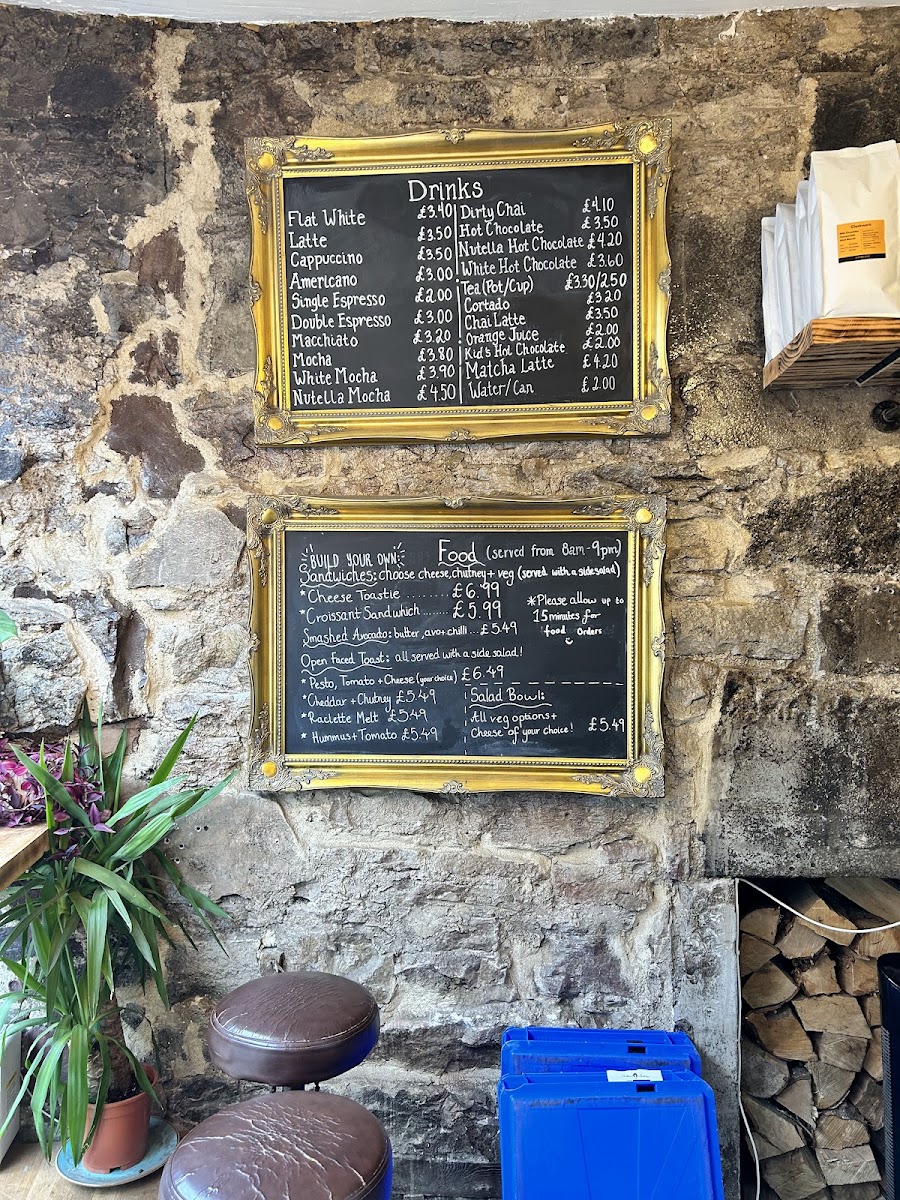 Drinks
Flat White £3.40
Latte £3.50
Cappuccino £3.50
Americano £3.00
Single Espresso £2.00
Double Espresso £3.00
Macchiato £3.20
Mocha £3.80
White Mocha £3.90
Nutella Mocha £4.50
Dirty Chai £4.10
Hot Chocolate £3.50
Nutella Hot Chocolate £4.20
White Hot Chocolate £3.60
Tea (Pot/Cup) £3.30/2.50
Cortado £3.20
Chai Latte £3.50
Orange Juice £2.00
Kid's Hot Chocolate £2.00
Matcha Latte £4.20
Water/Can £2.00
BUILD YOUR OWN Food (served from 8am-9pm)
Sandwiches: choose cheese, chutney + veg (served with a side salad)
*Cheese Toastie ......... £6.99
*Croissant Sandwich ....... £5.99
*Please allow up to
15 minutes for
food orders
Smashed Avocado: butter, avo + chilli ... £5.49
Open Faced Toast: all served with a side salad!
* Pesto, Tomato + Cheese (your choice) £6.49
*Cheddar + Chutney £5.49
*Raclette Melt £5.49
* Hummus + Tomato £5.49
Salad Bowl:
All veg options +
Cheese of your choice! £5.49